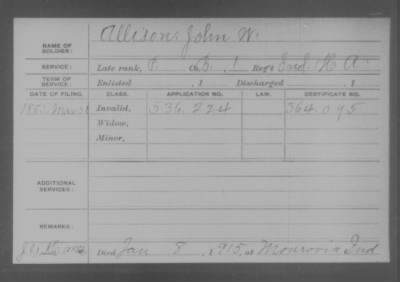 NAME OF SOLDIER: Allison, John W.
SERVICE: Late rank, P. Co. B, 1 Reg't Ind. H. A.
TERM OF SERVICE: Enlisted , 1 Discharged , 1
DATE OF FILING. CLASS. APPLICATION NO. LAW. CERTIFICATE NO.
1885 Mar 31 Invalid, 536.224 364.095
Widow,
Minor,
ADDITIONAL SERVICES:
REMARKS:
Died Jan 8, 1915, at Monrovia Ind